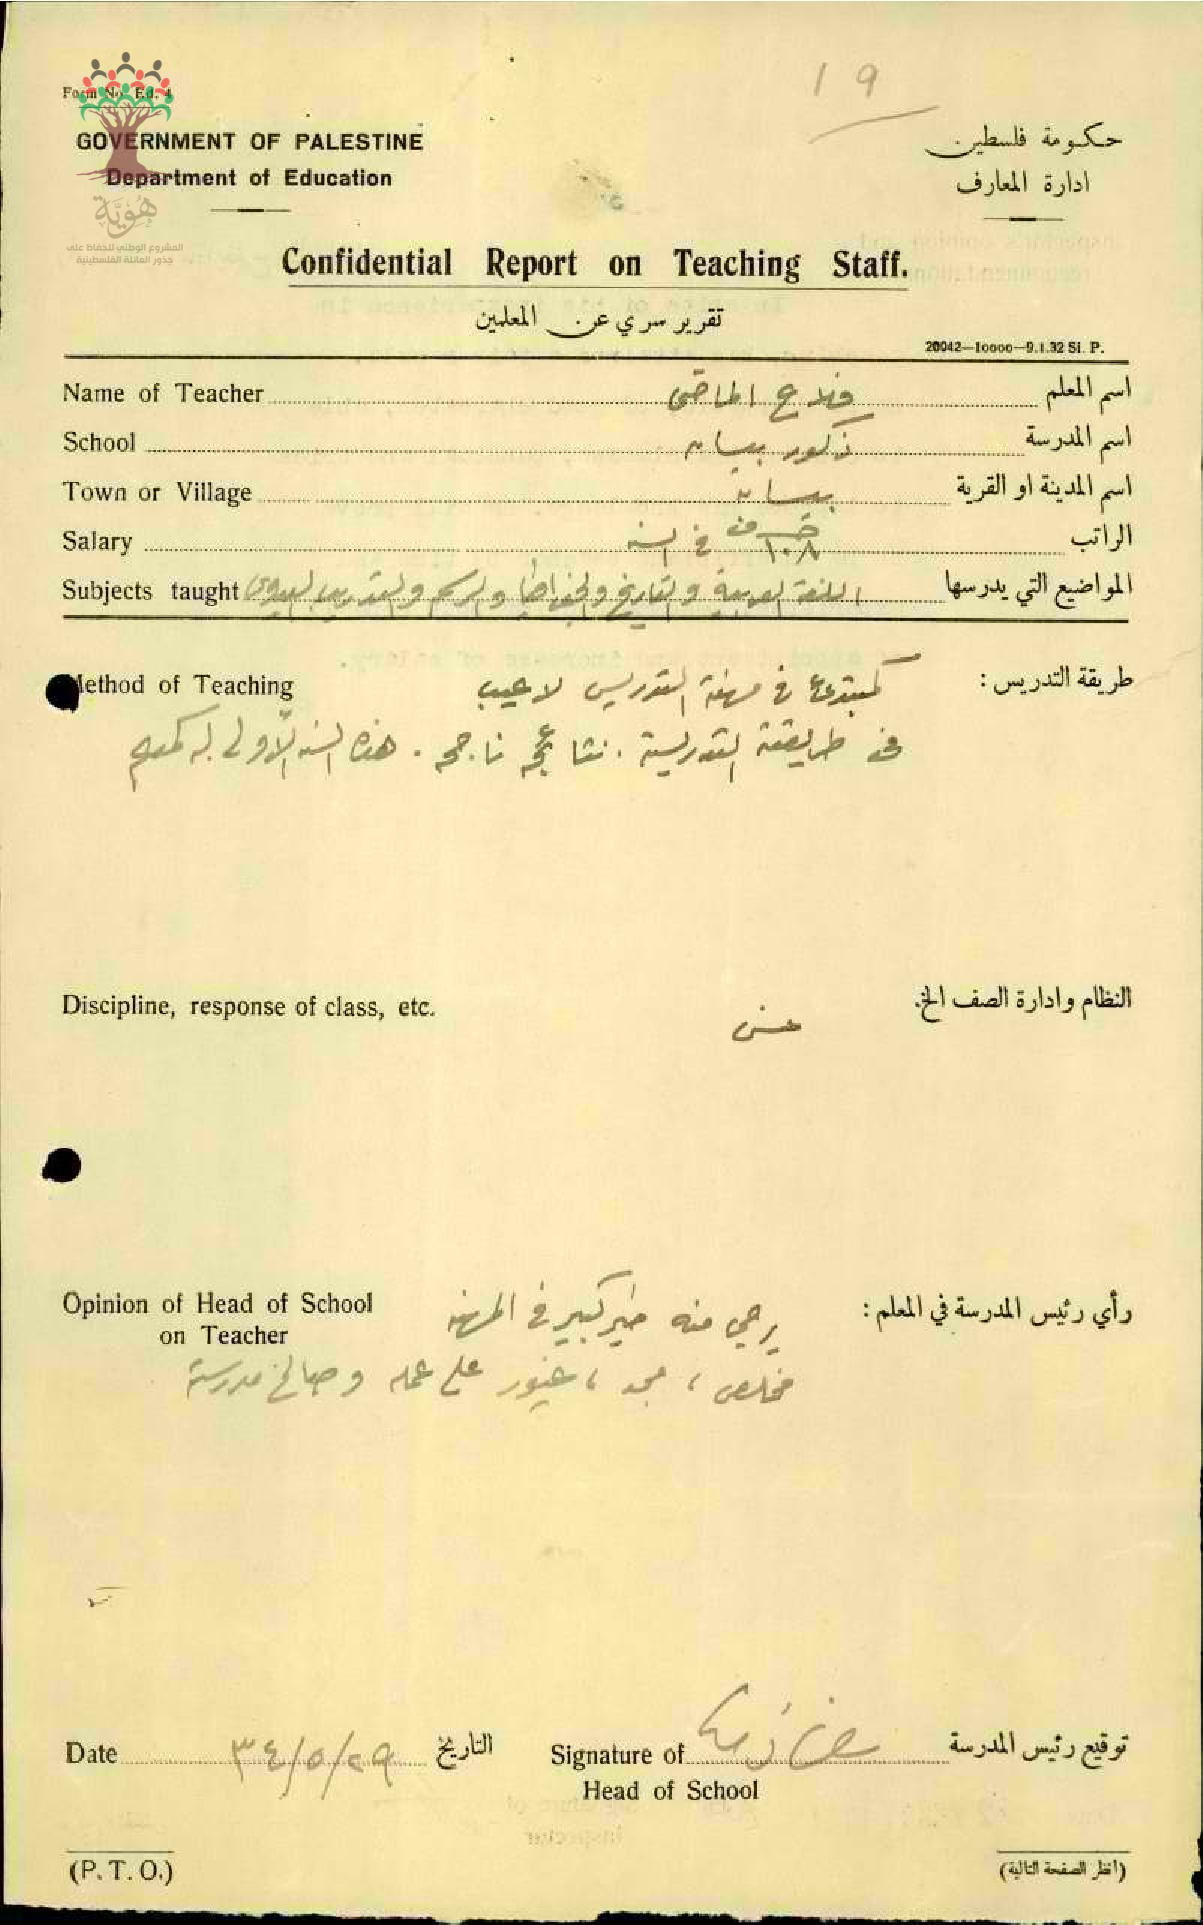 ١٩
Form No. Ed. 4
GOVERNMENT OF PALESTINE
Department of Education
حكومة فلسطين
ادارة المعارف
هُوِيَّة
المشروع الوطني للحفاظ على
جذور العائلة الفلسطينية
Confidential Report on Teaching Staff.
تقرير سري عن المعلمين
20042—10000—9.1.32 Sl. P.
Name of Teacher فلاح الماضي اسم المعلم
School ذكور بيسان اسم المدرسة
Town or Village بيسان اسم المدينة او القرية
Salary ١٠٨ في السنة الراتب
Subjects taught اللغة العربية والتاريخ والجغرافيا والرسم والتدريب اليدوي المواضيع التي يدرسها
Method of Teaching كمبتدئ في مهنة التدريس لا عيب طريقة التدريس :
في طريقته التدريسية . نتائجه ناجحة . هذه السنة الأولى له كمعلم
Discipline, response of class, etc. حسن النظام وادارة الصف الخ.
Opinion of Head of School يرجى منه خير كبير في المهنة رأي رئيس المدرسة في المعلم :
on Teacher
مخلص ، مجد ، غيور على عمله وصالح مدرسته
Date ٣٤/٥/٢٩ التاريخ Signature of توقيع رئيس المدرسة
Head of School
(P. T. O.) (انظر الصفحة التالية)